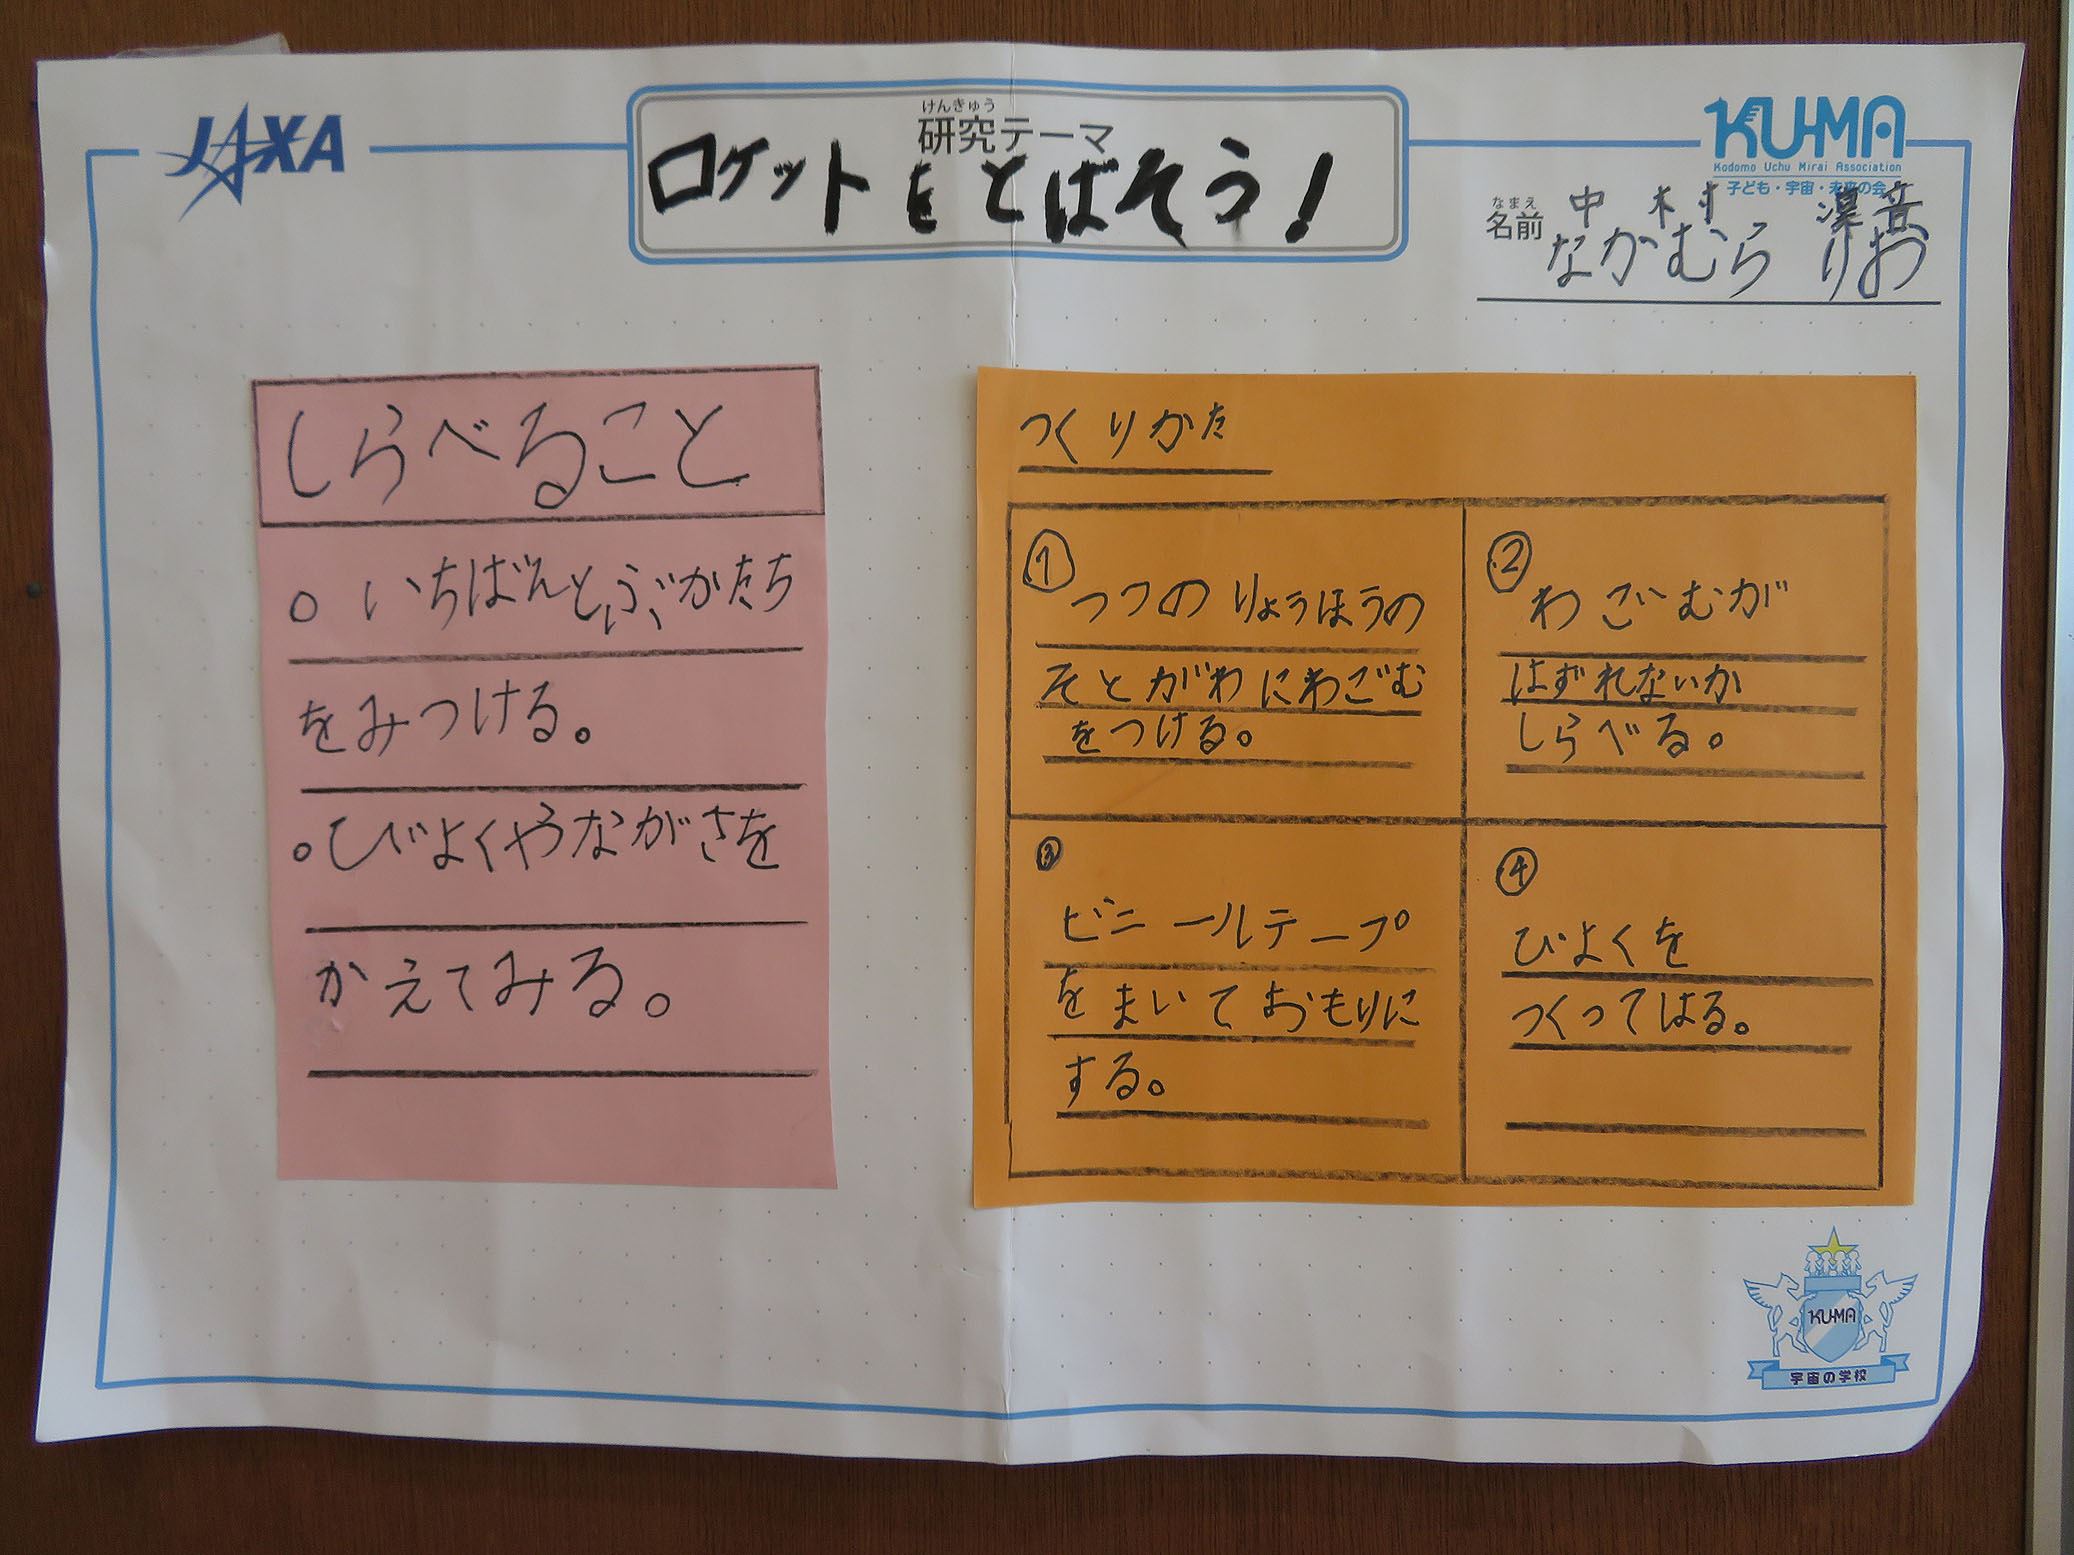 JAXA
けんきゅう
研究テーマ
ロケットをとばそう!
KU-MA
Kodomo Uchu Mirai Association
子ども・宇宙・未来の会
なまえ
名前
中村 音
なかむら りお
しらべること
○ いちばんとぶかたち
をみつける。
○びよくやながさを
かえてみる。
つくりかた
① つつのりょうほうの
そとがわにわごむ
をつける。
② わごむが
はずれないか
しらべる。
③
ビニールテープ
をまいておもりに
する。
④
びよくを
つくってはる。
KU-MA
宇宙の学校